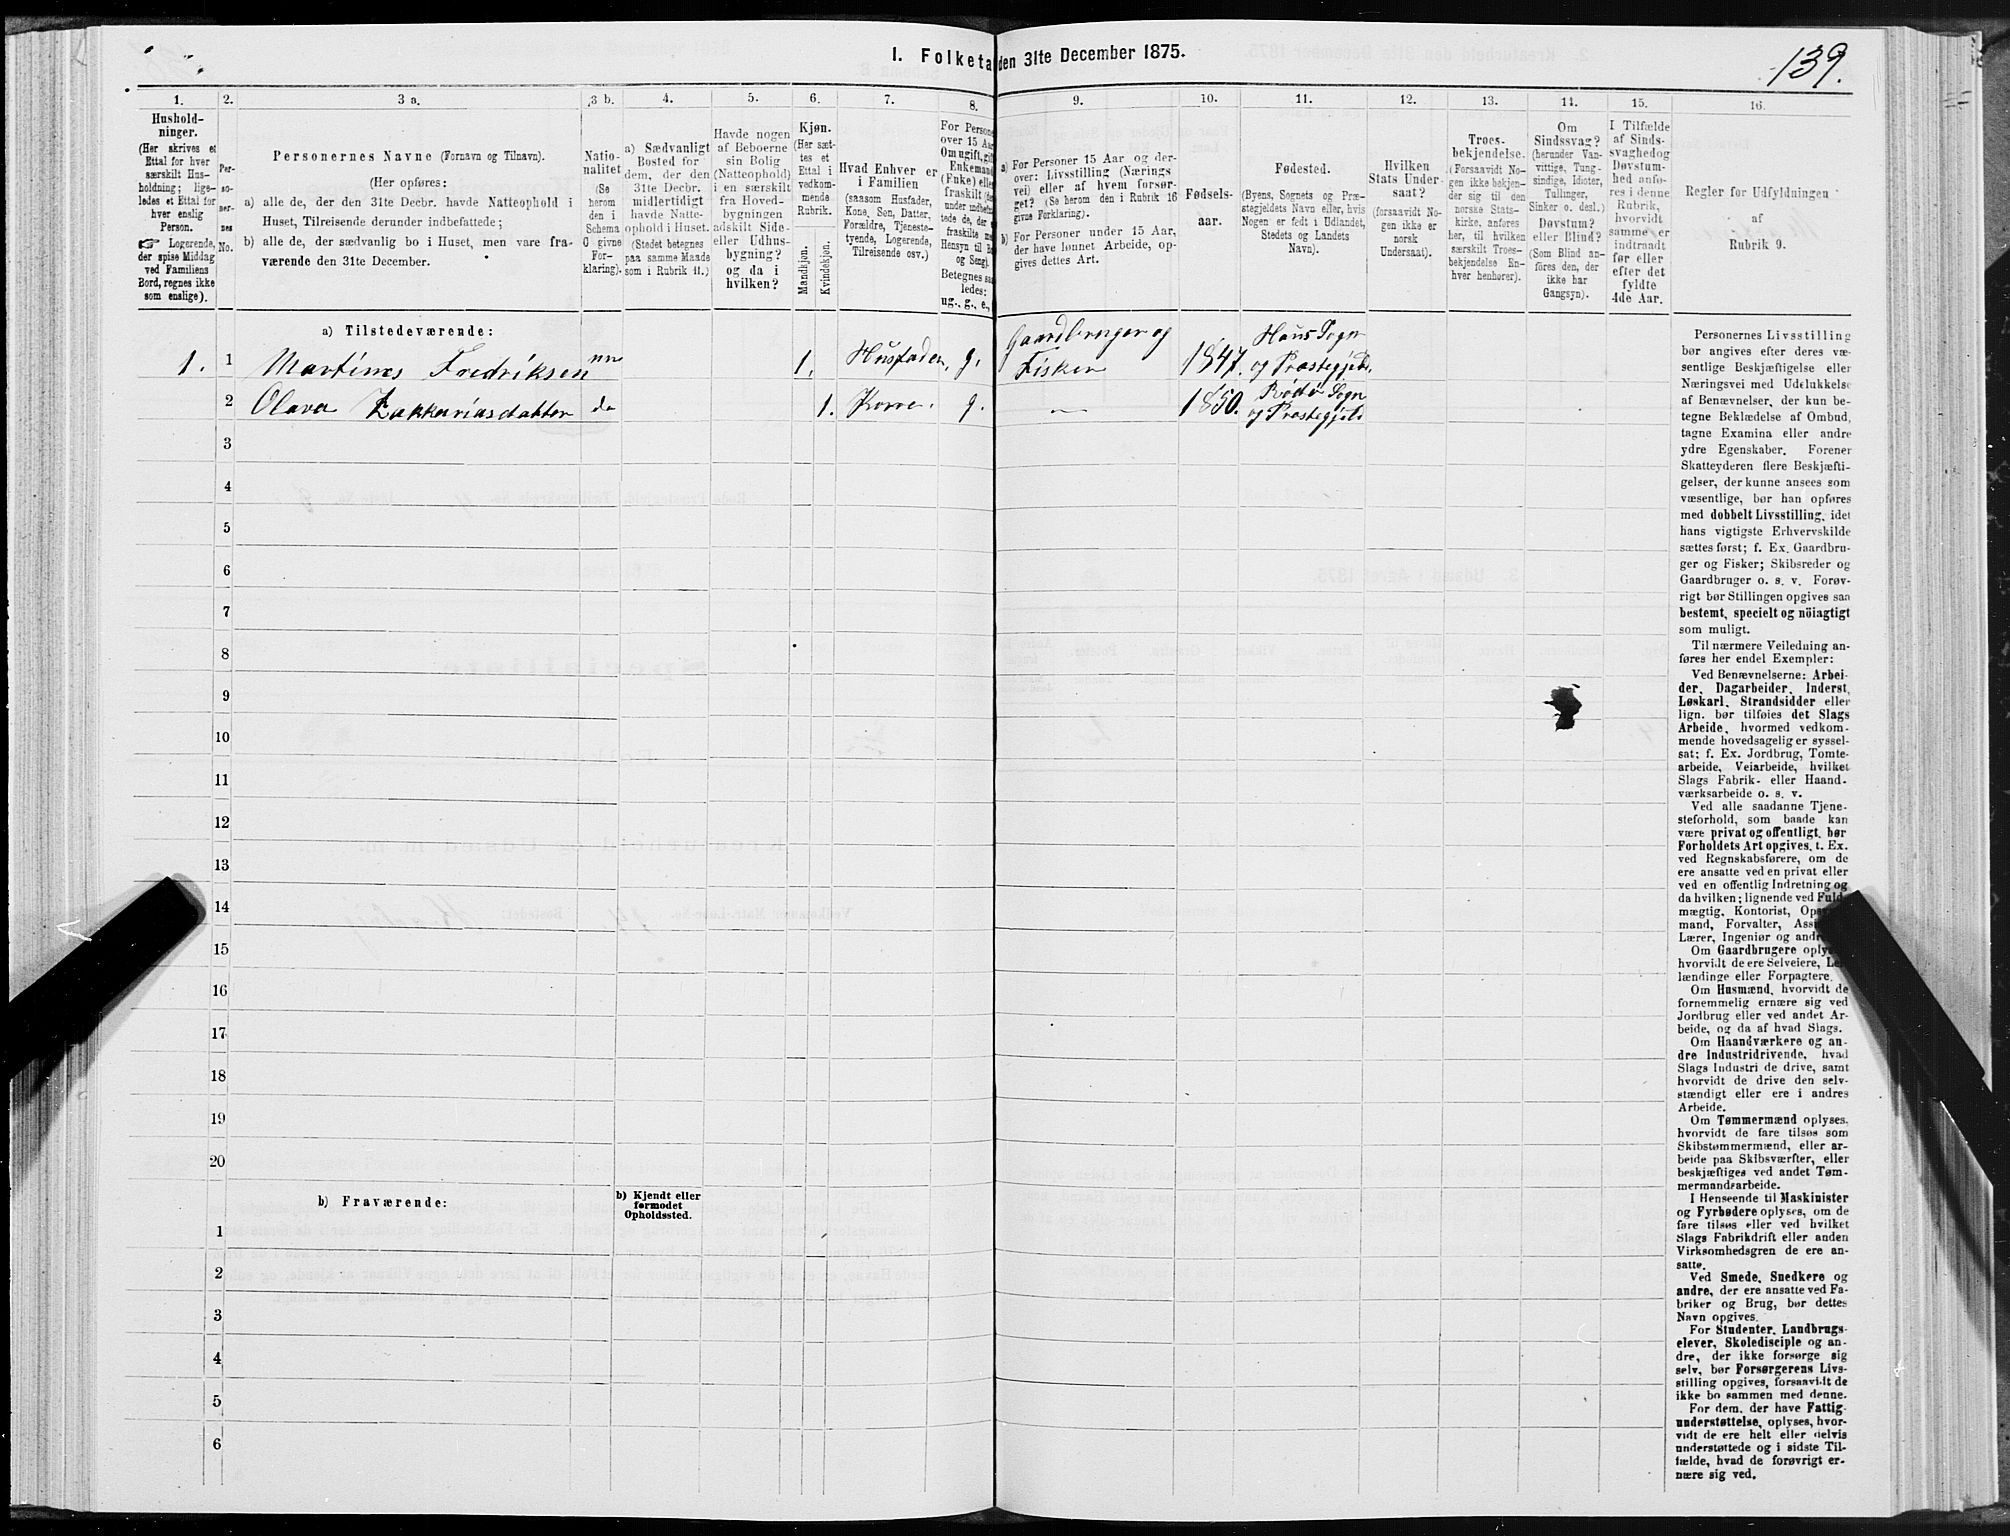 139.
1. Folketa den 31te December 1875.
1.
Hushold-
ninger.
(Her skrives et
Ettal for hver
særskilt Hus-
holdning; lige-
ledes et Ettal for
hver enslig
Person.
☞ Logerende,
der spise Middag
ved Familiens
Bord, regnes ikke
som enslige).
2.
Per-
so-
ner-
nes
No.
3 a.
Personernes Navne (Fornavn og Tilnavn).
(Her opføres:
a) alle de, der den 31te Decbr. havde Natteophold i
Huset, Tilreisende derunder indbefattede;
b) alle de, der sædvanlig bo i Huset, men vare fra-
værende den 31te December.
3 b.
Natio-
nalitet
(Se
herom
den i
Schema
O givne
For-
klaring).
4.
a) Sædvanligt
Bosted for
dem, der den
31te Decbr.
midlertidigt
havde Natte-
ophold i Huset.
(Stedet betegnes
paa samme Maade
som i Rubrik 11.)
5.
Havde nogen
af Beboerne
sin Bolig
(Natteophold)
i en særskilt
fra Hoved-
bygningen
adskilt Side-
eller Udhus-
bygning?
og da i
hvilken?
6.
Kjøn.
(Her sæt-
tes et
Ettal i
vedkom-
mende
Rubrik.
Mandkjøn.
Kvindekjøn.
7.
Hvad Enhver er
i Familien
(saasom Husfader,
Kone, Søn, Datter,
Forældre, Tjeneste-
tyende, Logerende,
Tilreisende osv.)
8.
For Persone
over 15 Aar
Om ugift, gift
Enkemand
(Enke) elle
fraskilt
under indbefat
tede de, der
fraskilte
Hensyn til Bo
og Seng).
Betegnes saa
ledes:
ug., g., e.,
9.
a) For Personer 15 Aar og der-
over: Livsstilling (Nærings
vei) eller af hvem forsør-
get? (Se herom den i Rubrik 16
givne Forklaring).
b) For Personer under 15 Aar,
der have lønnet Arbeide, op-
gives dettes Art.
10.
Fødsels-
aar.
11.
Fødested.
(Byens, Sognets og Præ-
stegjeldets Navn eller, hvis
Nogen er født i Udlandet,
Stedets og Landets
Navn).
12.
Hvilken
Stats Under
saat?
(forsaavidt No-
gen ikke er
norsk
Undersaat).
13.
Troes-
bekjendelse.
(Forsaavidt No-
gen ikke bekjen-
der sig til den
norske Stats-
kirke, anføres
her, til hvilken
særskilt Troes-
bekjendelse En-
hver henhører).
14.
Om
Sindssvag?
(herunder Van-
vittige, Tung-
sindige, Idioter,
Tullinger,
Sinker o. desl.)
Døvstum?
eller Blind?
(Som Blind an-
føres den, der
ikke har
Gangsyn).
15.
I Tilfælde
af Sinds-
svaghed og
Døvstum-
hed anfø-
res i denne
Rubrik,
hvorvidt
samme er
indtraadt
før eller
efter det
fyldte
4de Aar.
16.
Regler før Udfyldningen
af
Rubrik 9.
a) Tilstedeværende:
1. 1 Martines Fredriksen nn 1. Husfader, g. Gaardbruger og Fisker 1847. Haus Sogn og Præstegjeld.
2 Olava Zakkariasdatter do 1. Kone. g. — 1850. Rødø Sogn og Præstegjeld
3
4
5
6
7
8
9
10
11
12
13
14
15
16
17
18
19
20
b) Fraværende:
b) Kjendt eller
formodet
Opholdssted.
1
2
3
4
5
6
Personernes Livsstilling
bør angives efter deres væ-
sentlige Beskjæftigelse eller
Næringsvei med Udelukkelse
af Benævnelser, der kun be-
tegne Beklædelse af Ombud,
tagne Examina eller andre
ydre Egenskaber. Forener
Skatteyderen flere Beskjæfti-
gelser, der kunne ansees som
væsentlige, bør han opføres
med dobbelt Livsstilling, idet
hans vigtigste Erhvervskilde
sættes først; f. Ex. Gaardbru-
ger og Fisker; Skibsreder og
Gaardbruger o. s. v. Forøv-
rigt bør Stillingen opgives saa
bestemt, specielt og nöiagtigt
som muligt.
Til nærmere Veiledning an-
føres her endel Exempler:
Ved Benævnelserne: Arbei-
der, Dagarbeider, Inderst,
Løskarl, Strandsidder eller
lign. bør tilføies det Slags
Arbeide, hvormed vedkom-
mende hovedsagelig er syssel-
sat; f. Ex. Jordbrug, Tomte-
arbeide, Veiarbeide, hvilket
Slags Fabrik- eller Haand-
værksarbeide o. s. v.
Ved alle saadanne Tjene-
steforhold, som baade kan
være privat og offentligt, bør
Forholdets Art opgives, t. Ex.
ved Regnskabsførere, om de
ere ansatte ved en privat eller
ved en offentlig Indretning og
da hvilken; lignende ved Fuld-
mægtig, Kontorist, Ops
mand, Forvalter, Assi
Lærer, Ingeniør og andr
Om Gaardbrugere oply
hvorvidt de ere Selveiere, Lei-
lændinge eller Forpagtere.
Om Husmænd, hvorvidt de
fornemmelig ernære sig ved
Jordbrug eller ved andet Ar-
beide, og da af hvad Slags.
Om Haandværkere og an-
dre Industridrivende, hvad
Slags Industri de drive, samt
hvorvidt de drive den selv-
stændigt eller ere i andres
Arbeide.
Om Tømmermænd oplyses,
hvorvidt de fare tilsøs som
Skibstømmermænd, eller ar-
beide paa Skibsværfter, eller
beskjæftiges ved andet Tøm-
mermandsarbeide.
I Henseende til Maskinister
og Fyrbødere oplyses, om de
fare tilsøs eller ved hvilket
Slags Fabrikdrift eller anden
Virksomhedsgren de ere an-
satte.
Ved Smede, Snedkere og
andre, der ere ansatte ved Fa-
briker og Brug, bør dettes
Navn opgives.
For Studenter, Landbrugs-
elever, Skoledisciple og an-
dre, der ikke forsørge sig
selv, bør Forsørgerens Livs-
stilling opgives, forsaavidt de
ikke bo sammen med denne.
For dem, der have Fattig-
understøttelse, oplyses, hvor-
vidt de ere helt eller delvis
understøttede og i sidste Til-
fælde, hvad de forøvrigt er-
nære sig ved.